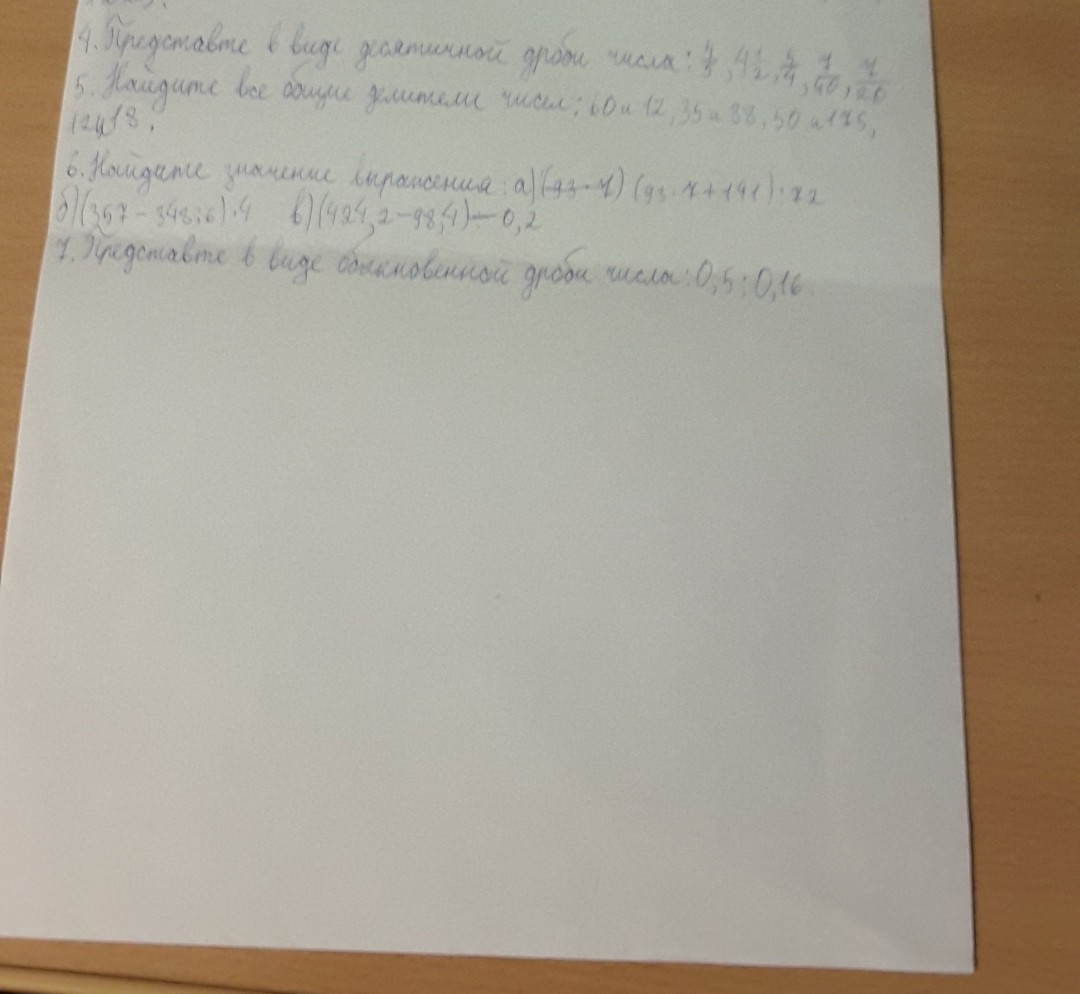 4. Представте в виде десятичной дроби числа: 4/5, 4 1/2, 5/4, 7/40, 7/20
5. Найдите все общие делители чисел: 60 и 12, 35 и 88, 50 и 175,
12 и 18.
6. Найдите значение выражения: а) (93·7+141):72
б) (357-348:6)·4 в) (424,2-98,4)÷0,2
7. Представте в виде обыкновенной дроби числа: 0,5; 0,16.